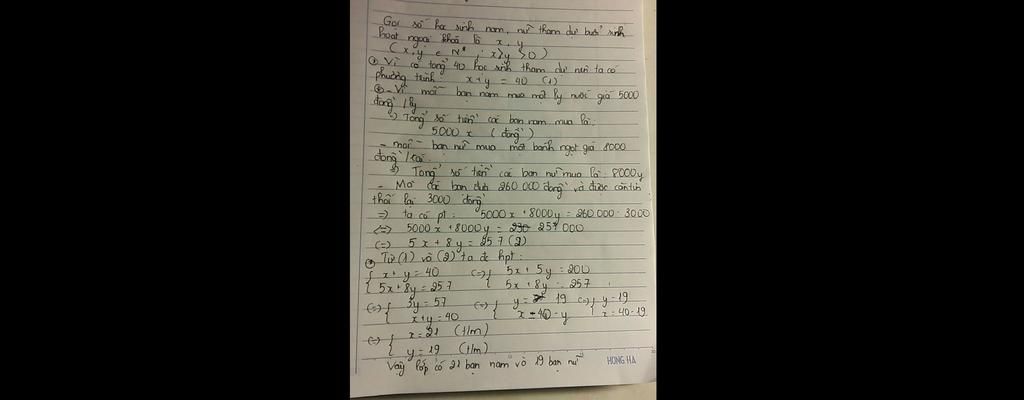 Gọi số học sinh nam, nữ tham dự buổi sinh
hoạt ngoại khoá là x, y
( x, y ∈ N* ; x > y > 0 )
Vì có tổng 40 học sinh tham dự nên ta có
phương trình: x + y = 40 (1)
- Vì mỗi bạn nam mua một ly nước giá 5000
đồng / ly
=> Tổng số tiền các bạn nam mua là:
5000 x ( đồng )
- mỗi bạn nữ mua một bánh ngọt giá 8000
đồng / cái.
=> Tổng số tiền các bạn nữ mua là: 8000y
- Mà các bạn đưa 260 000 đồng và được căn tin
thối lại 3000 đồng
=> ta có pt: 5000x + 8000y = 260 000 - 3000
<=> 5000x + 8000y = 257 000
<=> 5x + 8y = 257 (2)
Từ (1) và (2) ta đc hpt:
{ x + y = 40 <=> { 5x + 5y = 200
{ 5x + 8y = 257 { 5x + 8y = 257
<=> { 3y = 57 <=> { y = 19 <=> { y = 19
{ x + y = 40 { x = 40 - y { x = 40 - 19
<=> { x = 21 (t/m)
{ y = 19 (t/m)
Vậy lớp có 21 bạn nam và 19 bạn nữ
HONG HA